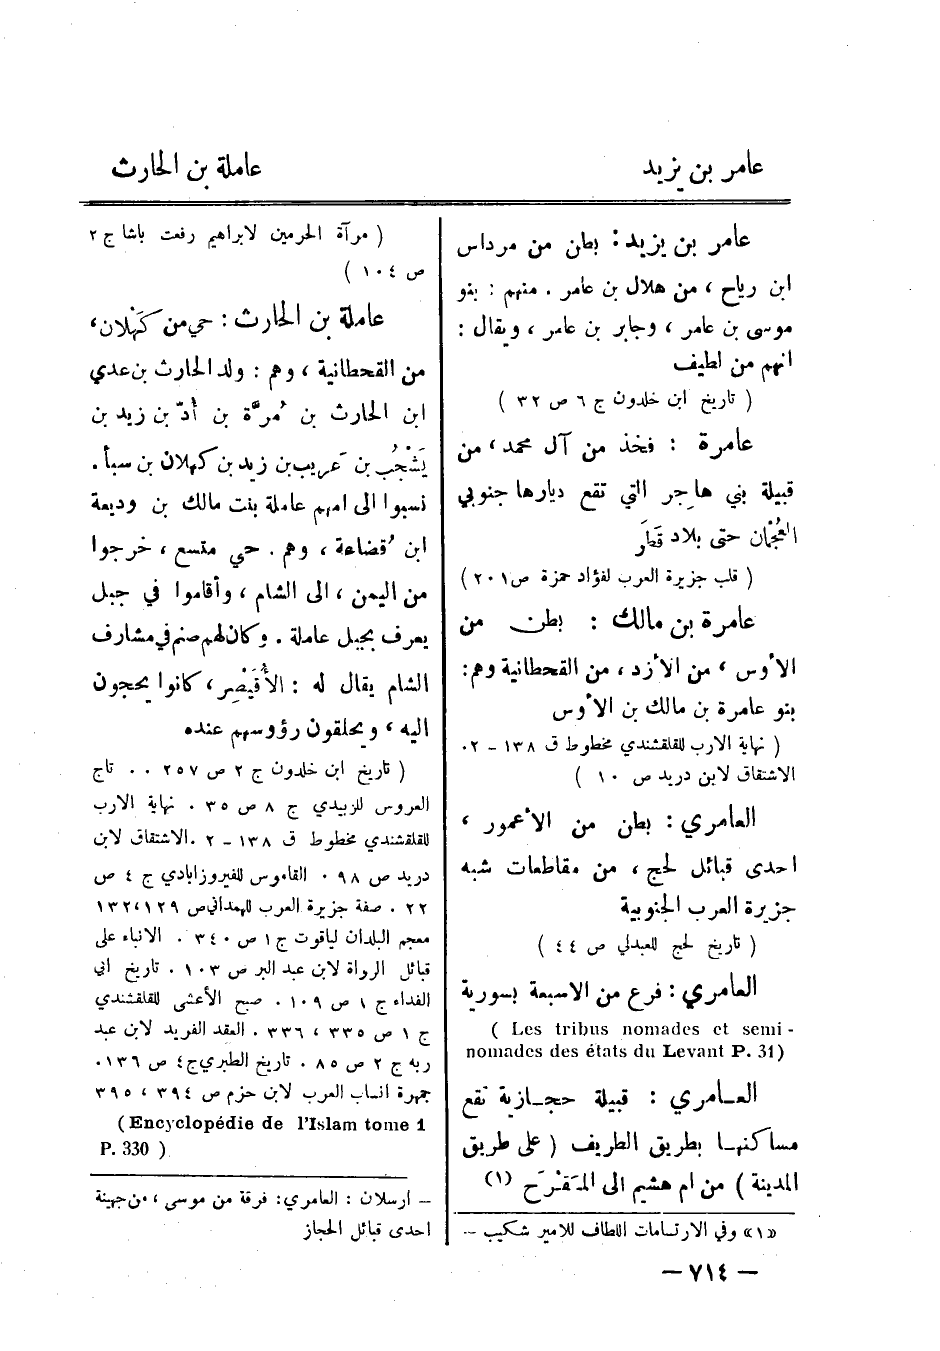 عامر بن يزيد
عاملة بن الحارث
عامر بن يزيد : بطن من مرداس
ابن رياح ، من هلال بن عامر . منهم : بنو
موسى بن عامر ، وجابر بن عامر ، ويقال :
انهم من لطيف
( تاريخ ابن خلدون ج ٦ ص ٣٢ )
عامرة : فخذ من آل محمد ، من
قبيلة بني هاجر التي تقع ديارها جنوبي
العُجْمان حتى بلاد قَطَر
( قلب جزيرة العرب لفؤاد حمزة ص ٢٠١ )
عامرة بن مالك : بطن من
الأوس ، من الأزد ، من القحطانية وهم :
بنو عامرة بن مالك بن الأوس
( نهاية الارب للقلقشندي مخطوط ق ١٣٨ - ٢ .
الاشتقاق لابن دريد ص ١٠ )
العامري : بطن من الأعمور ،
احدى قبائل لحج ، من مقاطعات شبه
جزيرة العرب الجنوبية
( تاريخ لحج للعبدلي ص ٤٤ )
العامري : فرع من الاسبعة بسورية
( Les tribus nomades et semi -
nomades des états du Levant P. 31)
العـامري : قبيلة حجـازية تقع
مساكنهـا بطريق الطريف ( على طريق
المدينة ) من ام هشيم الى المَقْرَح (١)
«١» وفي الارتسامات اللطاف للامير شكيب –
( مرآة الحرمين لابراهيم رفعت باشا ج ٢
ص ١٠٤ )
عاملة بن الحارث : حي من كَهْلان ،
من القحطانية ، وهم : ولد الحارث بن عدي
ابن الحارث بن مُرَّة بن أدّ بن زيد بن
يَشْجُب بن عَريب بن زيد بن كهلان بن سبأ .
نسبوا الى امهم عاملة بنت مالك بن وديعة
ابن قُضاعة ، وهم . حي متسع ، خرجوا
من اليمن ، الى الشام ، وأقاموا في جبل
يعرف بجبل عاملة . وكان لهم صنم في مشارف
الشام يقال له : الأُقَيْصِر ، كانوا يحجون
اليه ، ويحلقون رؤوسهم عنده
( تاريخ ابن خلدون ج ٢ ص ٢٥٧ . . تاج
العروس للزبيدي ج ٨ ص ٣٥ . نهاية الارب
للقلقشندي مخطوط ق ١٣٨ - ٢ . الاشتقاق لابن
دريد ص ٩٨ . القاموس للفيروزابادي ج ٤ ص
٢٢ . صفة جزيرة العرب للهمداني ص ١٢٩ ، ١٣٢
معجم البلدان لياقوت ج ١ ص ٣٤٠ . الانباء على
قبائل الرواة لابن عبد البر ص ١٠٣ . تاريخ ابي
الفداء ج ١ ص ١٠٩ . صبح الأعشى للقلقشندي
ج ١ ص ٣٣٥ ، ٣٣٦ . العقد الفريد لابن عبد
ربه ج ٢ ص ٨٥ . تاريخ الطبري ج ٤ ص ١٣٦ .
جمهرة انساب العرب لابن حزم ص ٣٩٤ ، ٣٩٥
( Encyclopédie de l'Islam tome 1
P. 330 )
– ارسلان : العامري : فرقة من موسى ، من جهينة
احدى قبائل الحجاز
– ٧١٤ –